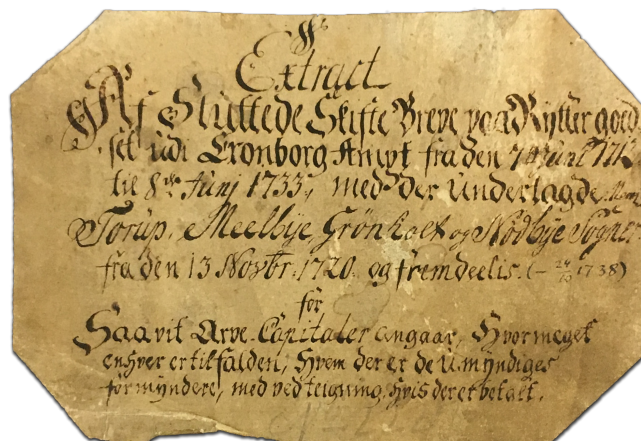 Extract
Af Sluttede Skifte Breve paa Rÿtter goed
set udi Cronborg Ampt fra den 7 Juni 1713
til 8de Junj 1733, med der Undertagde
Torup, Meelbÿe Grönholt og Nödbÿe Sogner
fra den 13 Novbr. 1720. og fremdeelis. (– 1738)
for
Saavit Arve-Capitaler angaar, Hvormeget
enhver er tilfalden, Hvem der er de Umÿndiges
formÿndere, med vedteigning, hvis der er betalt.